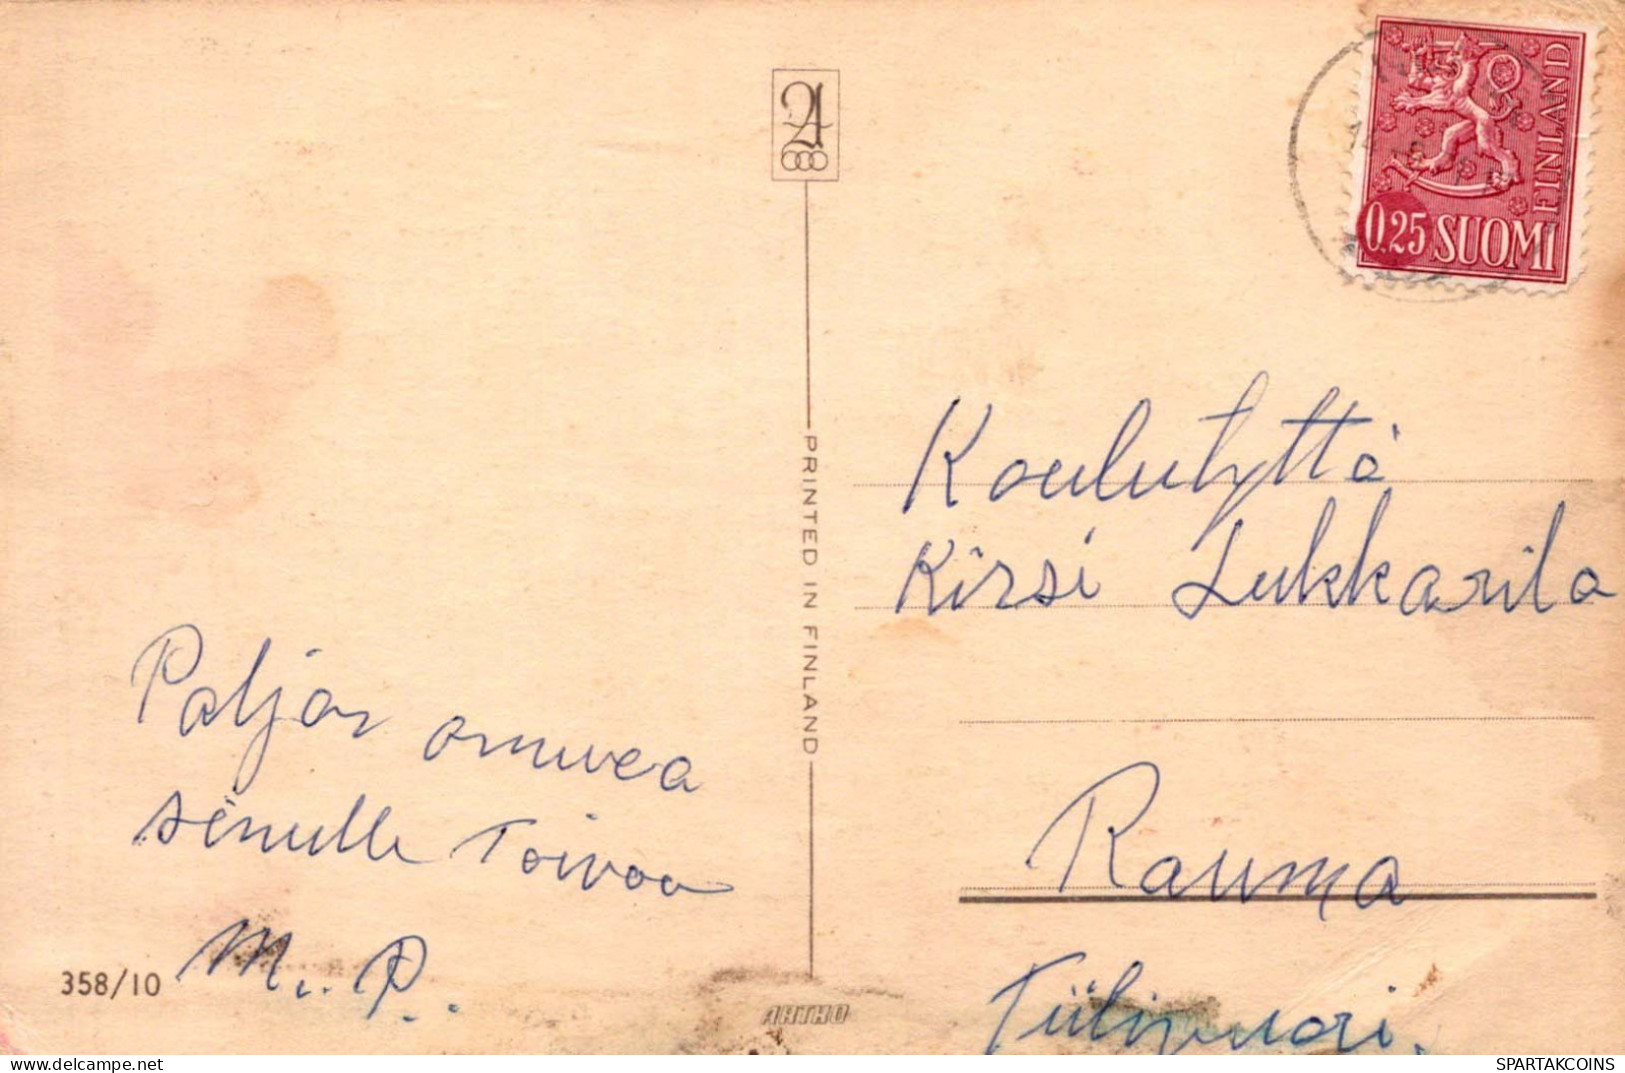 PRINTED IN FINLAND
0,25 SUOMI
FINLAND
Koulutyttö
Kirsi Lukkarila
Rauma
Tiilivuori.
Paljon onnea
sinulle Toivoo
M. P.
358/10
ARTHO
SPARTAKCOINS
WWW.DELCAMPE.NET